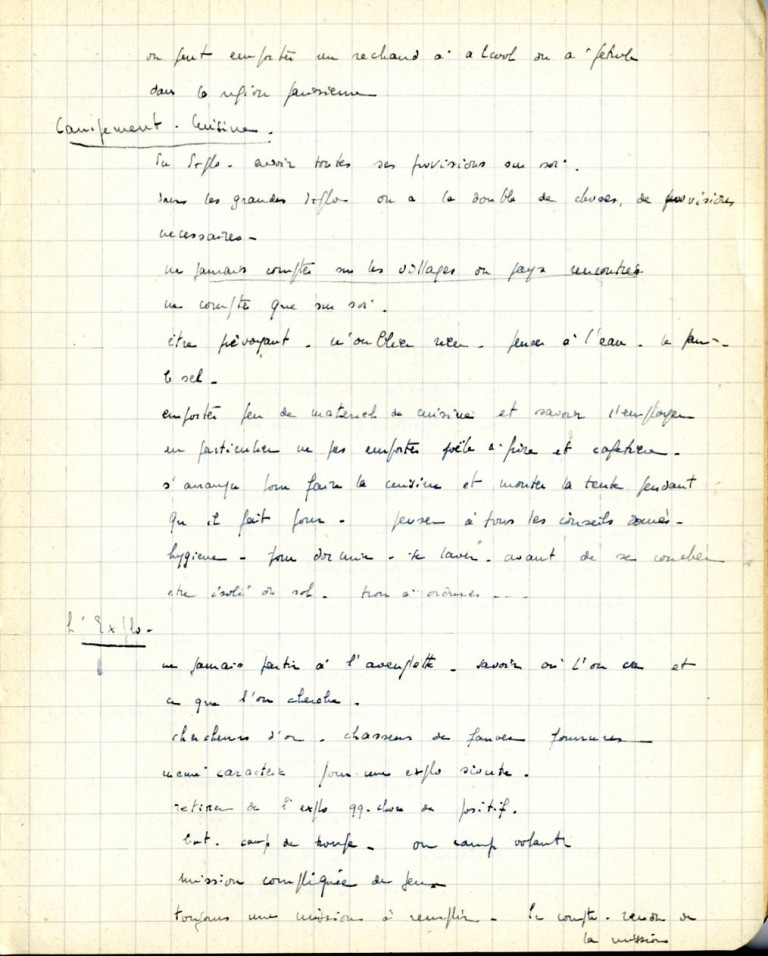 on peut emporter un rechaud à alcool ou à pétrole
dans la région parisienne
Campement. Cuisine.
En explo. avoir toutes ses provisions sur soi.
dans les grandes explos on a le double de choses, de provisions
necessaires -
ne jamais compter sur les villages ou pays rencontrés
ne compte que sur soi.
être prévoyant. n'oublier rien - penser à l'eau. le pain -
le sel -
emporter peu de materiel de cuisine et savoir l'employer
en particulier ne pas emporter poêle à frire et cafetiere -
s'arranger pour faire la cuisine et monter la tente pendant
qu'il fait jour - penser à tous les conseils donnés -
hygiene - pour dormir - se laver. avant de se coucher
être isolé du sol. trou à ordures ---
L'Explo -
ne jamais partir à l'aveuglette - savoir où l'on va et
ce que l'on cherche.
chercheurs d'or. chasseurs de fauves fourrures
meme caractere pour une explo scoute.
retirer de l'explo qq. chose de positif.
but. camp de troupe - ou camp volant
mission compliquée de jeu
toujours une mission à remplir - En compte-rendu de
la mission